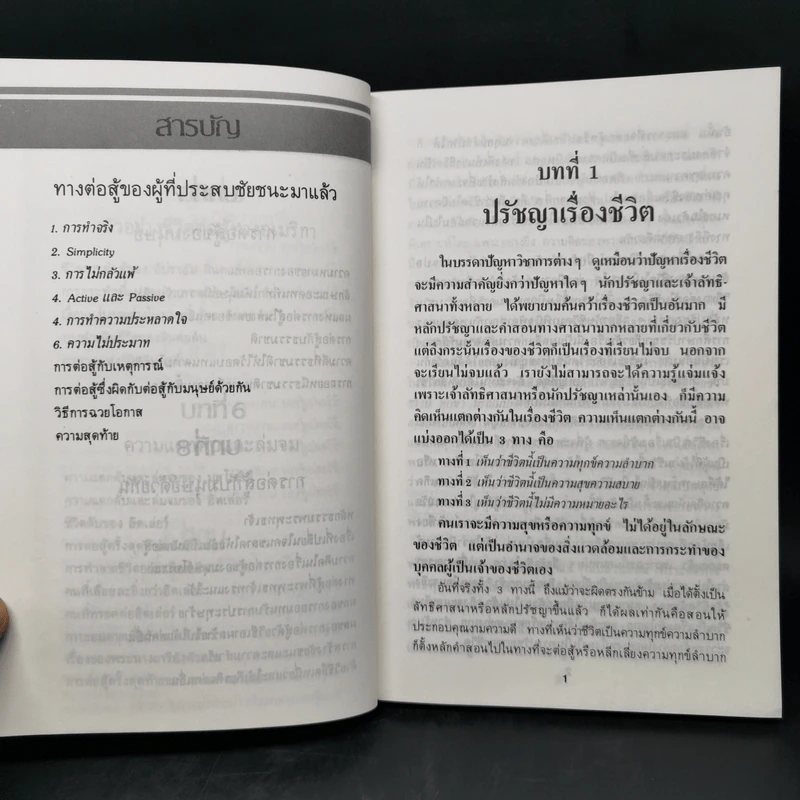 สารบัญ
ทางต่อสู้ของผู้ที่ประสบชัยชนะมาแล้ว
1. การทำจริง
2. Simplicity
3. การไม่กลัวแพ้
4. Active และ Passive
4. การทำความประหลาดใจ
6. ความไม่ประมาท
การต่อสู้กับเหตุการณ์
การต่อสู้ซึ่งผิดกับต่อสู้กับมนุษย์ด้วยกัน
วิธีการฉวยโอกาส
ความสุดท้าย
บทที่ 1
ปรัชญาเรื่องชีวิต
ในบรรดาปัญหาวิชาการต่างๆ ดูเหมือนว่าปัญหาเรื่องชีวิต
จะมีความสำคัญยิ่งกว่าปัญหาใดๆ นักปรัชญาและเจ้าลัทธิ-
ศาสนาทั้งหลาย ได้พยายามค้นคว้าเรื่องชีวิตเป็นอันมาก มี
หลักปรัชญาและคำสอนทางศาสนามากหลายที่เกี่ยวกับชีวิต
แต่ถึงกระนั้นเรื่องของชีวิตก็เป็นเรื่องที่เรียนไม่จบ นอกจาก
จะเรียนไม่จบแล้ว เรายังไม่สามารถจะได้ความรู้แจ่มแจ้ง
เพราะเจ้าลัทธิศาสนาหรือนักปรัชญาเหล่านั้นเอง ก็มีความ
คิดเห็นแตกต่างกันในเรื่องชีวิต ความเห็นแตกต่างกันนี้ อาจ
แบ่งออกได้เป็น 3 ทาง คือ
ทางที่ 1 เห็นว่าชีวิตนี้เป็นความทุกข์ความลำบาก
ทางที่ 2 เห็นว่าชีวิตนี้เป็นความสุขความสบาย
ทางที่ 3 เห็นว่าชีวิตนี้ไม่มีความหมายอะไร
คนเราจะมีความสุขหรือความทุกข์ ไม่ได้อยู่ในลักษณะ
ของชีวิต แต่เป็นอำนาจของสิ่งแวดล้อมและการกระทำของ
บุคคลผู้เป็นเจ้าของชีวิตเอง
อันที่จริงทั้ง 3 ทางนี้ ถึงแม้ว่าจะผิดตรงกันข้าม เมื่อได้ตั้งเป็น
ลัทธิศาสนาหรือหลักปรัชญาขึ้นแล้ว ก็ได้ผลเท่ากันคือสอนให้
ประกอบคุณงามความดี ทางที่เห็นว่าชีวิตเป็นความทุกข์ความลำบาก
ก็ตั้งหลักคำสอนไปในทางที่จะต่อสู้หรือหลีกเลี่ยงความทุกข์ลำบาก
1